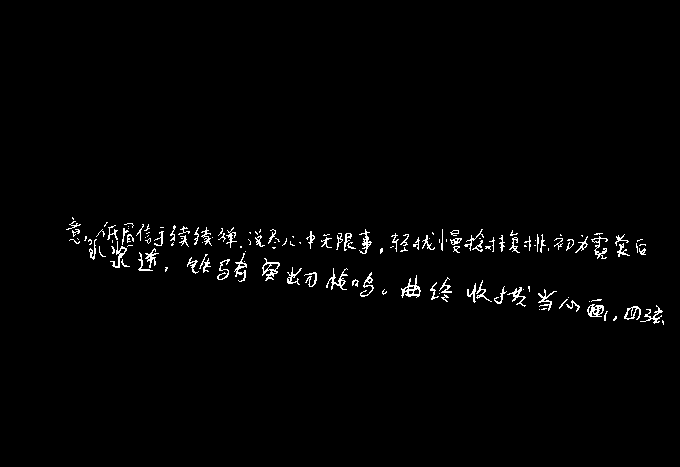 意。低眉信手续续弹,说尽心中无限事,轻拢慢捻抹复挑,初为霓裳后
水浆迸,铁骑突出刀枪鸣。曲终收拨当心画,四弦